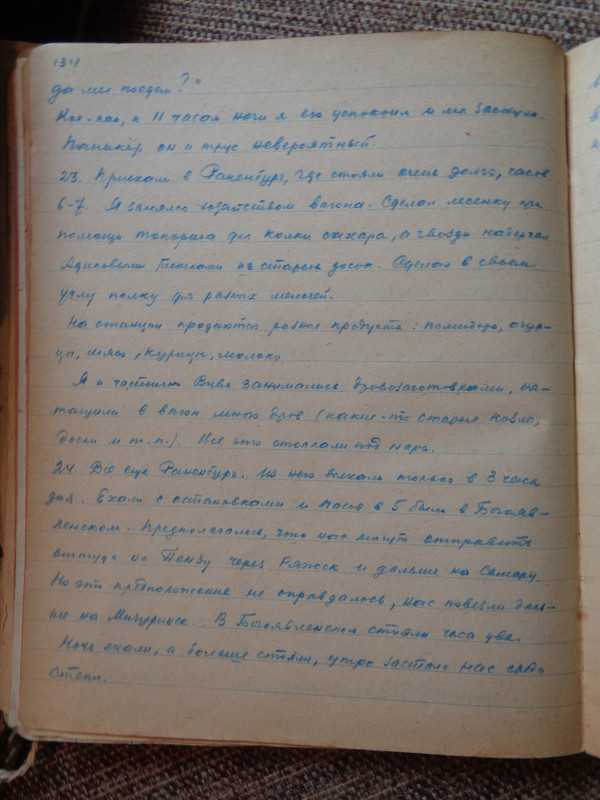 134
да мы поедем?"
Кое-как, к 11 часам ночи я его успокоил и мы заснули.
Паникёр он и трус невероятный.
23. Приехали в Раненбург, где стояли очень долго, часов
6-7. Я занялся хозяйством вагона. Сделал лесенку при
помощи топорика для колки сахара, а гвозди надергал
из старых досок. Сделал в своем
углу полку для разных мелочей.
На станции продаются разные продукты: помидоры, огур-
цы, мясо, курицы, молоко.
Я и частично Вива занимались дровозаготовками, на-
тащили в вагон много дров (какие-то старые колья,
доски и т.п.). Все это столкали под нары.
24. Всё еще Раненбург. Из него выехали только в 3 часа
дня. Ехали с остановками и часов в 5 были в Богояв-
ленском. Предполагалось, что нас могут отправить
оттуда на Пензу через Ряжск и дальше на Самару.
Но это предположение не оправдалось, нас повезли даль-
ше на Мичуринск. В Богоявленском стояли часа два.
Ночь ехали, а больше стояли, утро застало нас среди
степи.